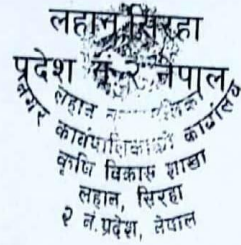 लहान, सिरहा
प्रदेश नं. २ नेपाल
लहान
नगर कार्यपालिकाको कार्यालय
कृषि विकास शाखा
लहान, सिरहा
२ नं. प्रदेश, नेपाल